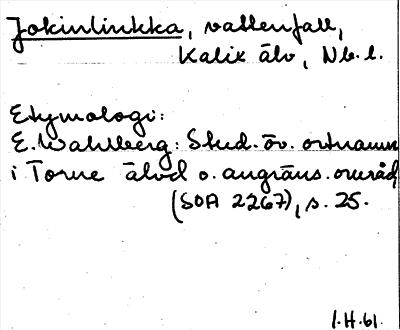 Jokinlinkka, vattenfall,
Kalix älv, Nb.l.
Etymologi:
E. Wahlberg: Stud. öv. ortnamn
i Torne älvd o. angräns. område
(SOA 2267), s. 25.
1.H.61.